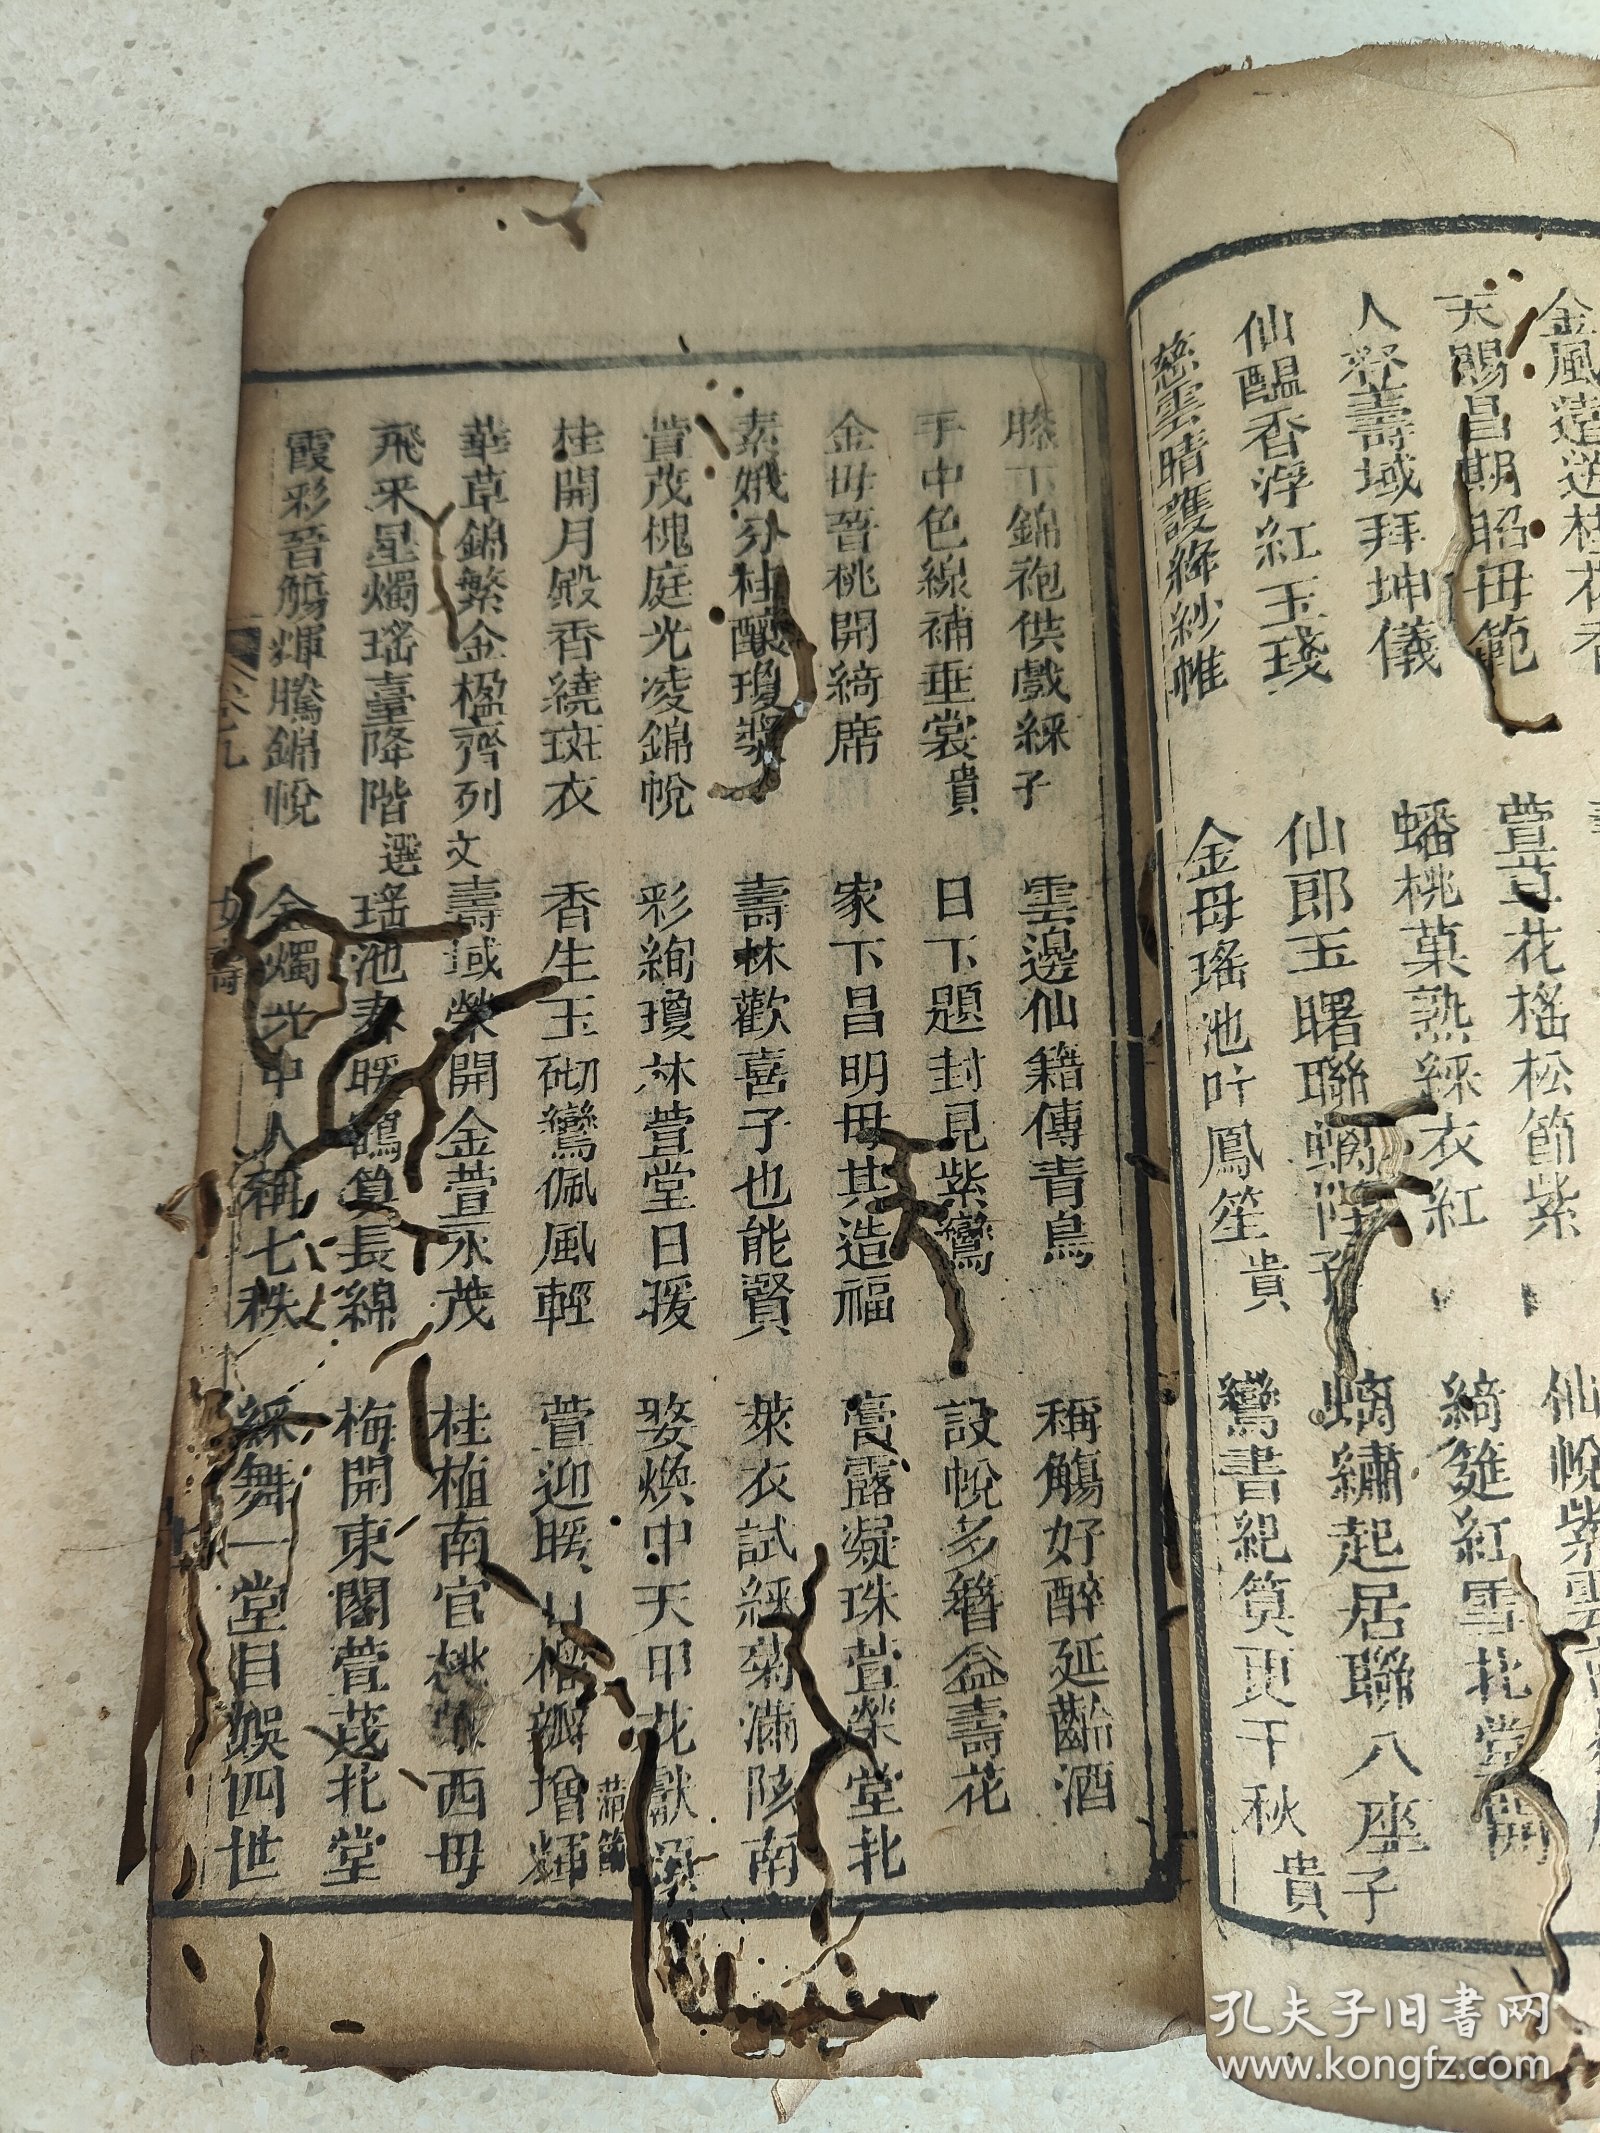 金風
天賜昌期昭母範
人登壽域拜坤儀
仙醞香浮紅玉琖
慈雲晴護絳紗帷
萱草花榣松節紫
蟠桃菓熟綵衣紅
仙郎玉曙聯螭陛子
金母瑤池叶鳳笙貴
仙帨紫雲
綺筵紅雪北堂開
螭繡起居聯八座子
鸞書紀筭更千秋貴
膝下錦袍供戲綵子
手中色線補垂裳貴
金母晉桃開綺席
素娥分桂釀瓊漿
萱茂槐庭光凌錦帨
桂開月殿香繞斑衣
華草錦繁金楹齊列文
飛來星燭瑤臺降階選
霞彩晉觴輝騰錦帨
雲邊仙籍傳青鳥
日下題封見紫鸞
家下昌明毋其造福
壽林歡喜子也能賢
彩絢瓊林萱堂日暖
香生玉砌鸞佩風輕
壽域榮開金萱永茂
瑤池春暖鶴算長綿
金燭光中人稱七秩
稱觴好醉延齡酒
設帨多簪益壽花
膏露凝珠萱榮堂北
萊衣試綵菊滿陔南
婺煥中天甲花獻
萱迎暖日榴瓣增輝蒲節
桂植南宮桃 西母
梅開東閣萱茂北堂
綵舞一堂目娛四世
卷九
孔夫子旧书网
www.kongfz.com